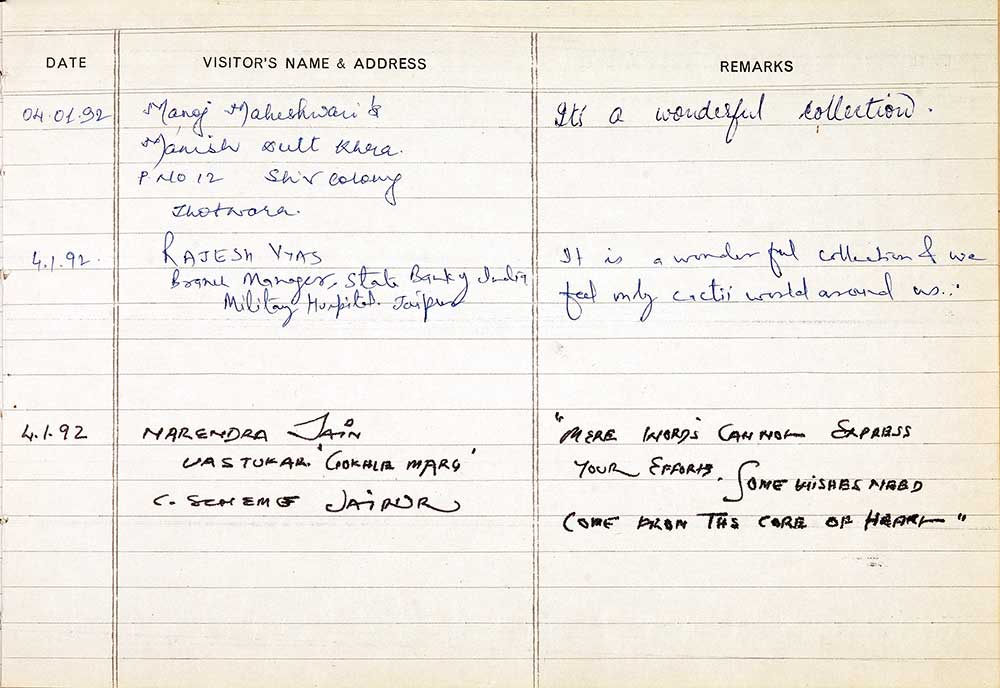 DATE VISITOR'S NAME & ADDRESS REMARKS
04.01.92 Manoj Maheshwari & It's a wonderful collection.
Manish Dutt Khera.
P.NO 12 Shiv Colony
Jhotwara.
4.1.92. RAJESH VYAS It is a wonderful collection & we
Branch Manager, State Bank of India feel only cactii world around us...
Military Hospital. Jaipur
4.1.92 NARENDRA JAIN "MERE WORDS CANNOT EXPRESS
VASTUKAR 'GOKHLE MARG' YOUR EFFORTS. SOME WISHES NEED
C-SCHEME JAIPUR COME FROM THE CORE OF HEART"